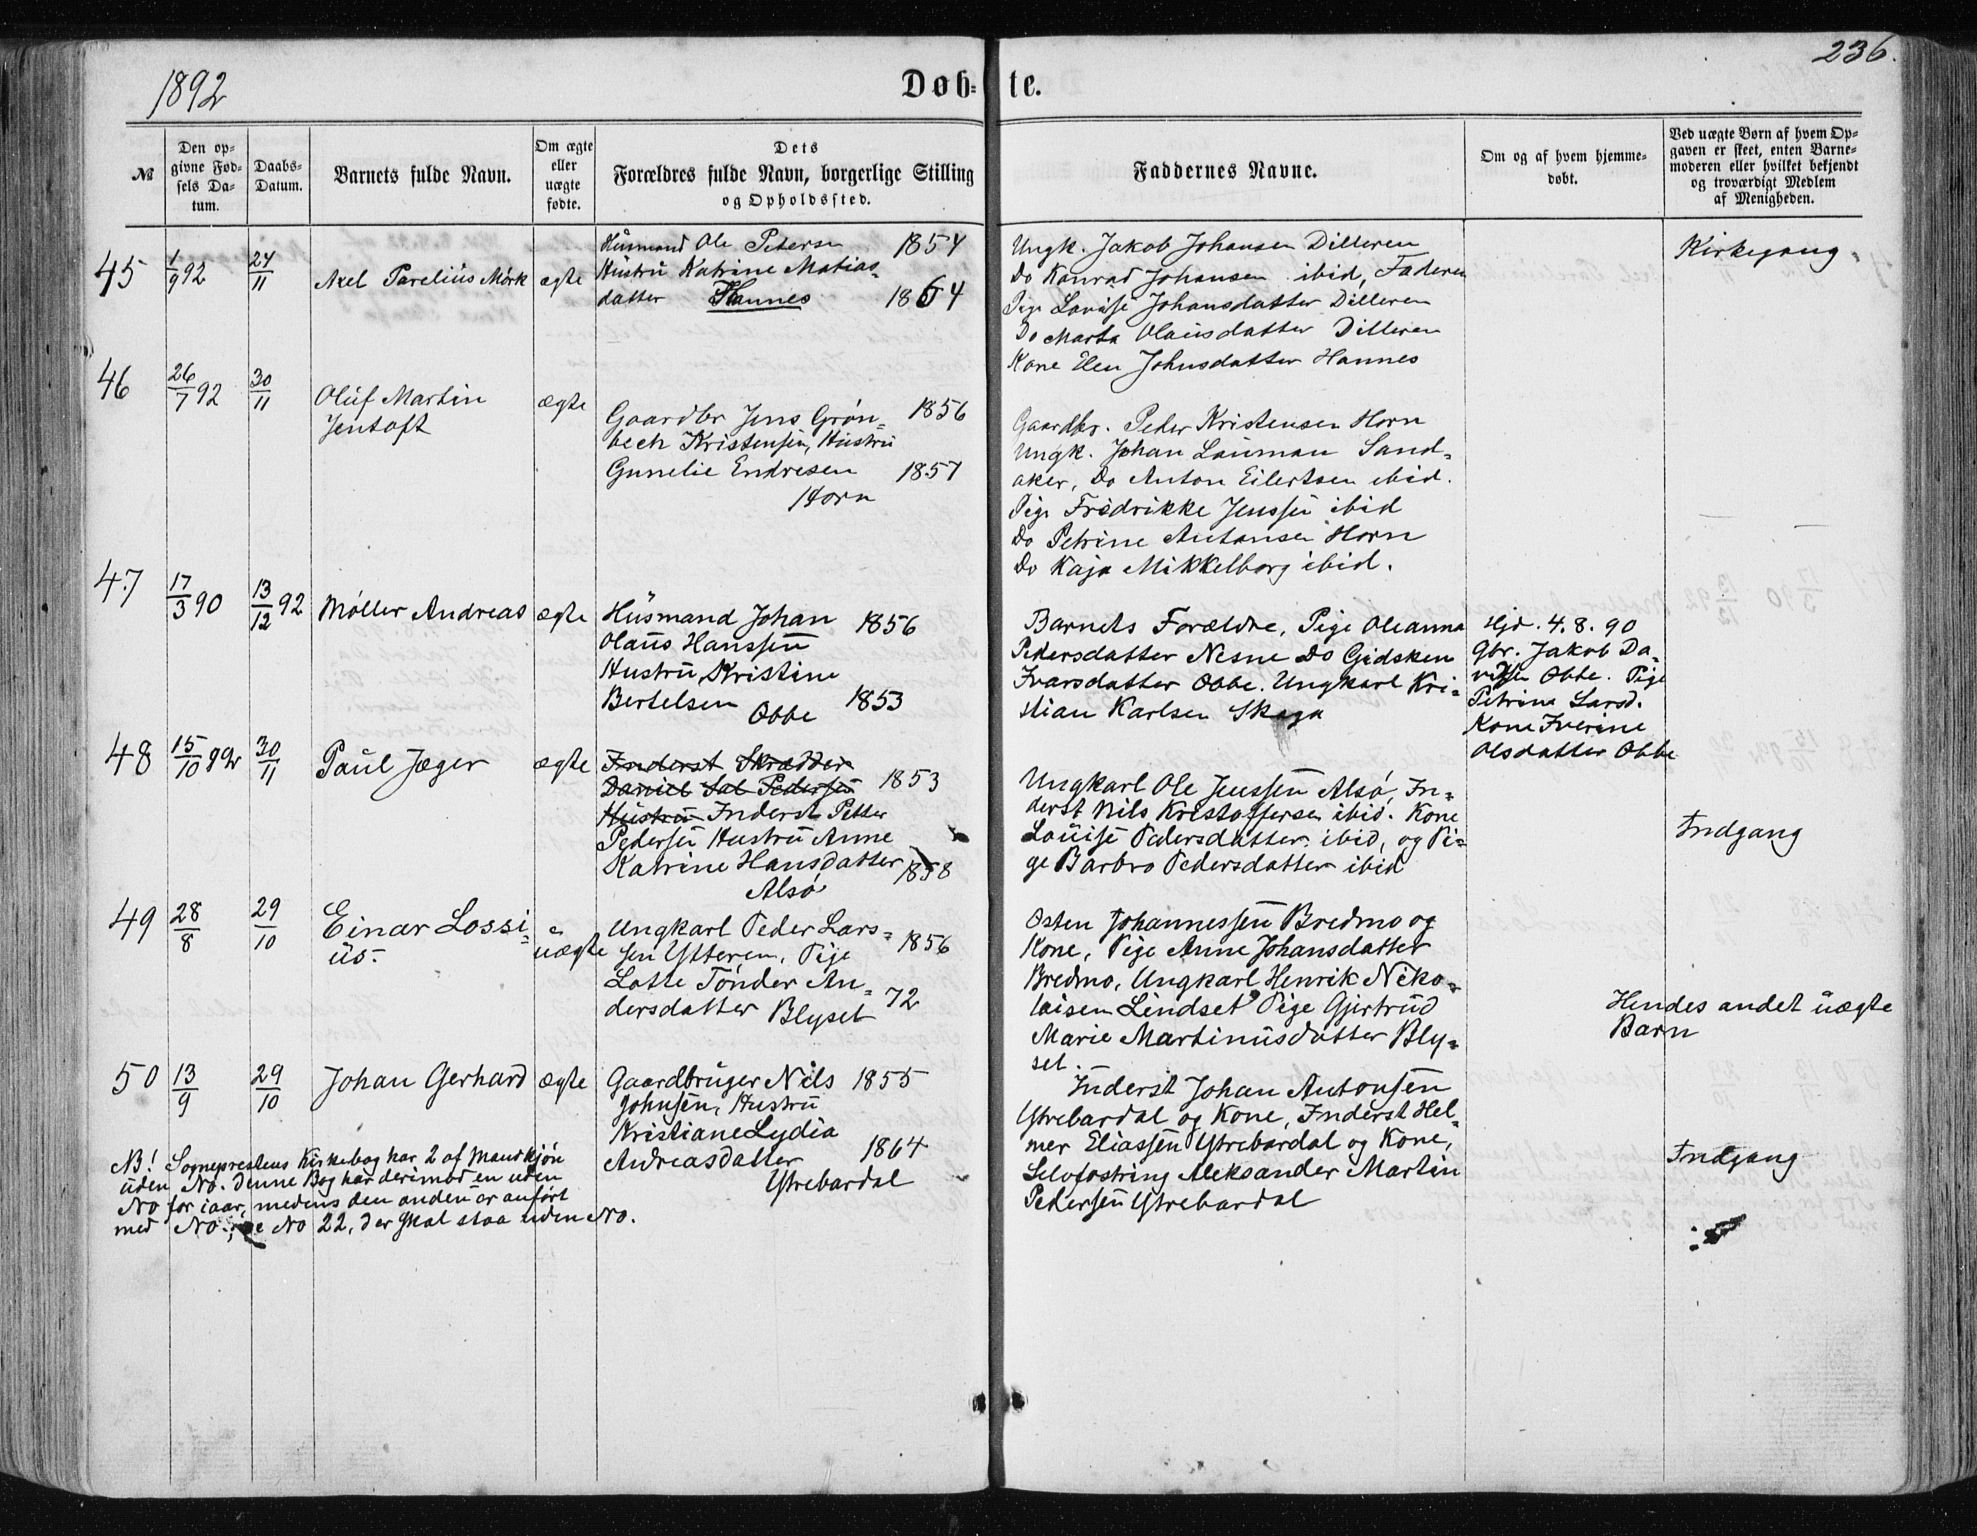 1892
Døb-te.
236.
№
Den op-
givne Fød-
sels Da-
tum.
Daabs-
Datum.
Barnets fulde Navn.
Om ægte
eller
uægte
fødte.
Dets
Forældres fulde Navn, borgerlige Stilling
og Opholdssted.
Faddernes Navne.
Om og af hvem hjemme-
døbt.
Ved uægte Børn af hvem Op-
gaven er skeet, enten Barne-
moderen eller hvilket bekjendt
og troværdigt Medlem
af Menigheden.
45
1/9 92
24/11
Axel Parelius Mørk
ægte
Husmand Ole Petersen 1854
Hustru Katrine Matias-
datter Hannes 1864
Ungk. Jakob Johansen Dilleren
Do Konrad Johansen ibid, Faderen
Pige Lovise Johansdatter Dilleren
Do Marta Olausdatter Dilleren
Kone Elen Johnsdatter Hannes
Kirkegang
46
26/7 92
30/11
Oluf Martin
Jentoft
ægte
Gaardbr Jens Grøn- 1856
bech Kristensen, Hustru
Gunelie Endresen 1857
Horn
Gaardbr. Peder Kristensen Horn
Ungk. Johan Lauman Sand-
aker, Do Anton Eilertsen ibid.
Pige Fredrikke Jenssen ibid
Do Petrine Antonsen Horn
Do Kaja Mikkelborg ibid.
47
17/3 90
13/12 92
Møller Andreas
ægte
Husmand Johan 1856
Olaus Hanssen
Hustru Kristine
Bertelsen 1853
Obbe
Barnets Forældre, Pige Oleanna
Pedersdatter Nesne Do Gidsken
Ivarsdatter Obbe. Ungkarl Kri-
stian Karlsen Skaga
Hjd. 4.8.90
Gbr. Jakob Da-
vidsen Obbe. Pige
Petrine Larsd.
Kone Iverine
Olsdatter Obbe
48
15/10 92
30/11
Paul Jæger
ægte
Inderst Skrædder
Daniel Sal Pedersen 1853
Hustru Inderst Petter
Pedersen Hustru Anne
Katrine Hansdatter 1858
Alsø
Ungkarl Ole Jenssen Alsø, In-
derst Nils Kristoffersen ibid. Kone
Louise Pedersdatter ibid, og Pi-
ge Barbro Pedersdatter ibid
Indgang
49
28/8
29/10
Einar Lossi-
us.
uægte
Ungkarl Peder Lars-
sen Ytteren, Pige 1856
Lotte Tønder An-
dersdatter Blyset 72
Osten Johannessen Bredmo og
Kone, Pige Anne Johansdatter
Bredmo, Ungkarl Henrik Niko-
laisen Lindset Pige Gjertrud
Marie Martinusdatter Bly-
set.
Hendes andet uægte
Barn
50
13/9
29/10
Johan Gerhard
ægte
Gaardbruger Nils 1855
Johnsen, Hustru
Kristiane Lydia
Andreasdatter 1864
Ytrebardal
Inderst Johan Antonsen
Ytrebardal og Kone, Inderst Hel-
mer Eliassen Ytrebardal og Kone,
Selvfostring Aleksander Martin
Pedersen Ytrebardal
Indgang
NB! Sogneprestens Kirkebog har 2 af Mandkjøn
uden No. Denne Bog har derimod en uden
No for iaar, medens den anden er anført
med No., se No 22, der skal staa uden No.